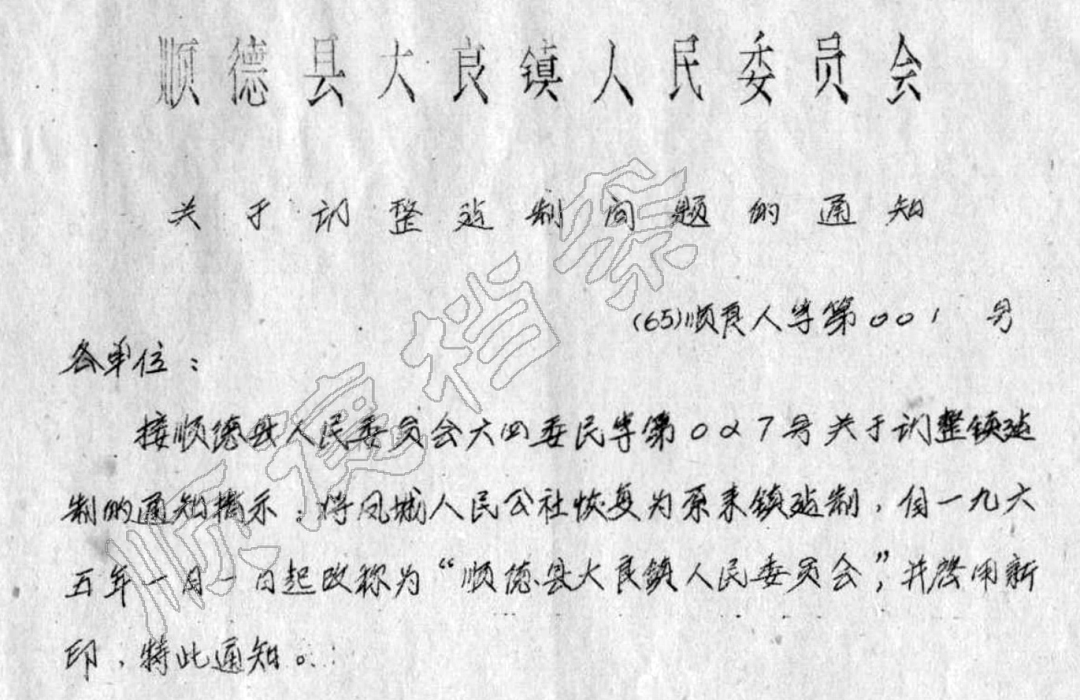 顺德县大良镇人民委员会
关于调整建制问题的通知
(65)顺良人字第001号
各单位：
接顺德县人民委员会六四委民字第027号关于调整镇建
制的通知指示：将凤城人民公社恢复为原来镇建制，自一九六
五年一月一日起改称为“顺德县大良镇人民委员会”，并启用新
印，特此通知。
顺德档案